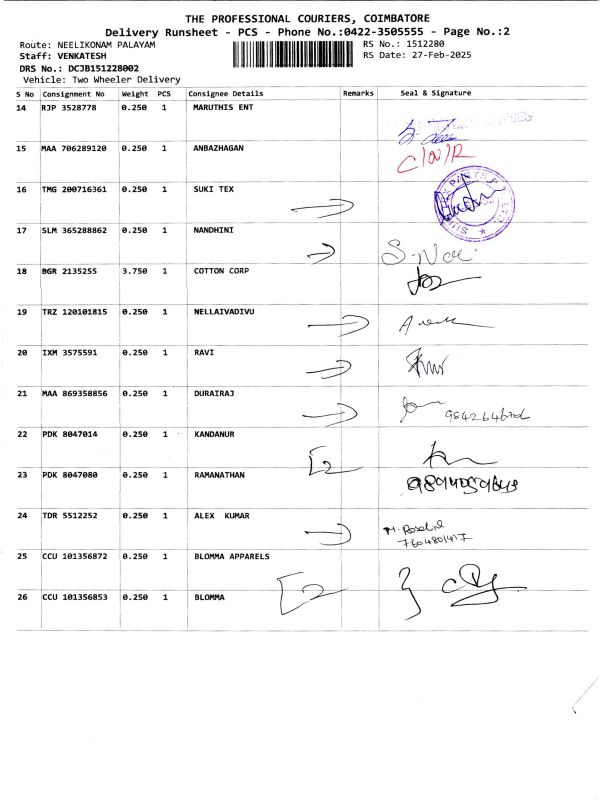 THE PROFESSIONAL COURIERS, COIMBATORE
Delivery Runsheet - PCS - Phone No.:0422-3505555 - Page No.:2
Route: NEELIKONAM PALAYAM RS No.: 1512280
Staff: VENKATESH RS Date: 27-Feb-2025
DRS No.: DCJB151228002
Vehicle: Two Wheeler Delivery
S No Consignment No Weight PCS Consignee Details Remarks Seal & Signature
14 RJP 3528778 0.250 1 MARUTHIS ENT
15 MAA 706289120 0.250 1 ANBAZHAGAN C/N/R
16 TMG 200716361 0.250 1 SUKI TEX
17 SLM 365288862 0.250 1 NANDHINI
18 BGR 2135255 3.750 1 COTTON CORP
19 TRZ 120101815 0.250 1 NELLAIVADIVU
20 IXM 3575591 0.250 1 RAVI
21 MAA 869358856 0.250 1 DURAIRAJ
22 PDK 8047014 0.250 1 KANDANUR
2
23 PDK 8047080 0.250 1 RAMANATHAN
24 TDR 5512252 0.250 1 ALEX KUMAR
25 CCU 101356872 0.250 1 BLOMMA APPARELS
2
26 CCU 101356853 0.250 1 BLOMMA